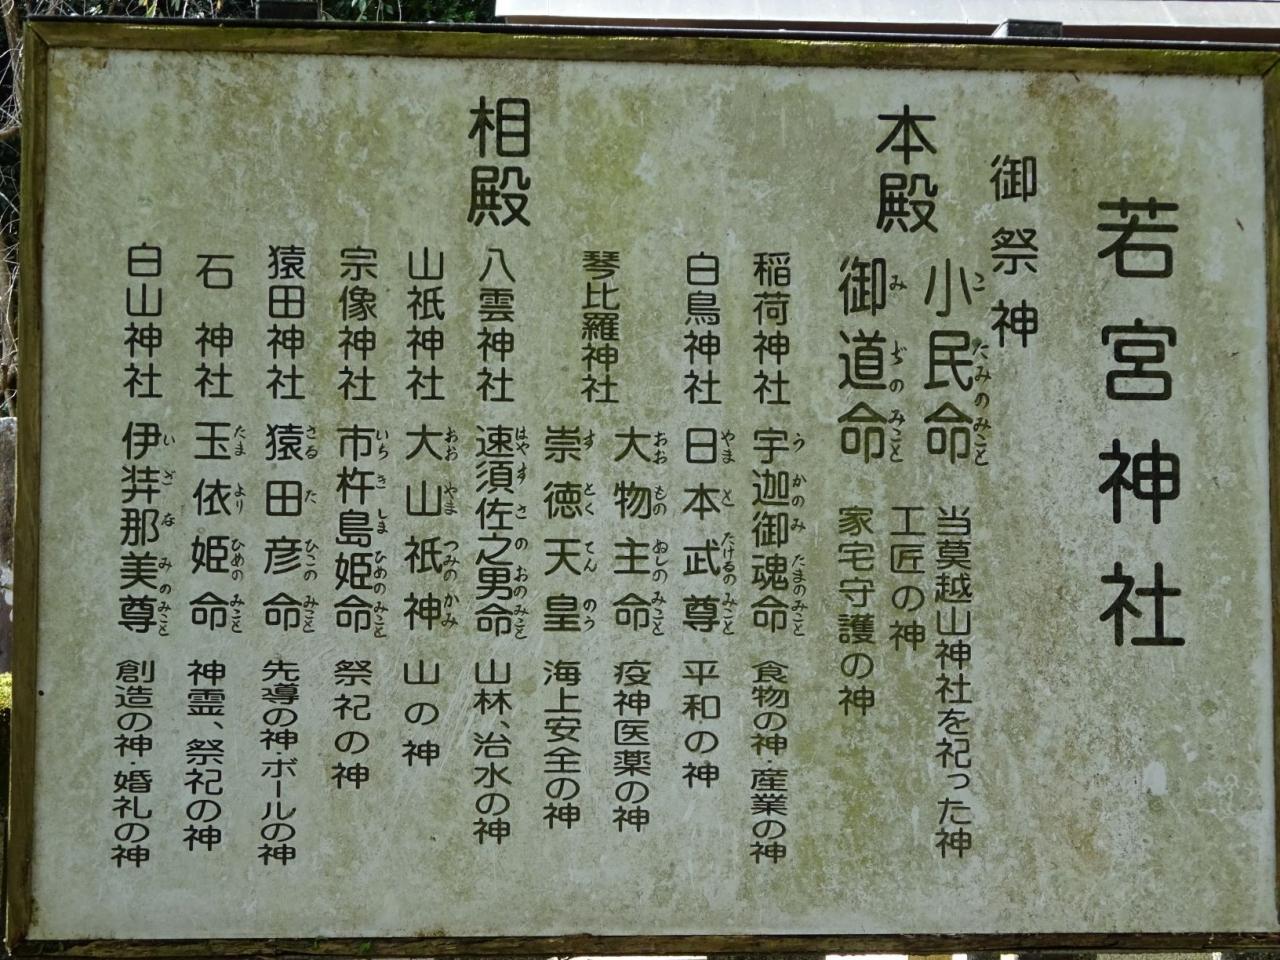 若宮神社
御祭神
本殿
小民命 当莫越山神社を祀った神
こ たみの みこと
工匠の神
御道命 家宅守護の神
み ぢの みこと
相殿
稲荷神社 宇迦御魂命 食物の神・産業の神
う かの み たまの みこと
白鳥神社 日本武尊 平和の神
やま と たけるの みこと
琴比羅神社
大物主命 疫神医薬の神
おお もの ぬしの みこと
崇徳天皇 海上安全の神
す とく てん のう
八雲神社 速須佐之男命 山林、治水の神
はや す さ の おの みこと
山祇神社 大山祇神 山の神
おお やま つみの かみ
宗像神社 市杵島姫命 祭祀の神
いち き しま ひめの みこと
猿田神社 猿田彦命 先導の神・ボールの神
さる た ひこの みこと
石神社 玉依姫命 神霊、祭祀の神
たま より ひめの みこと
白山神社 伊弉那美尊 創造の神・婚礼の神
い ざ な みの みこと